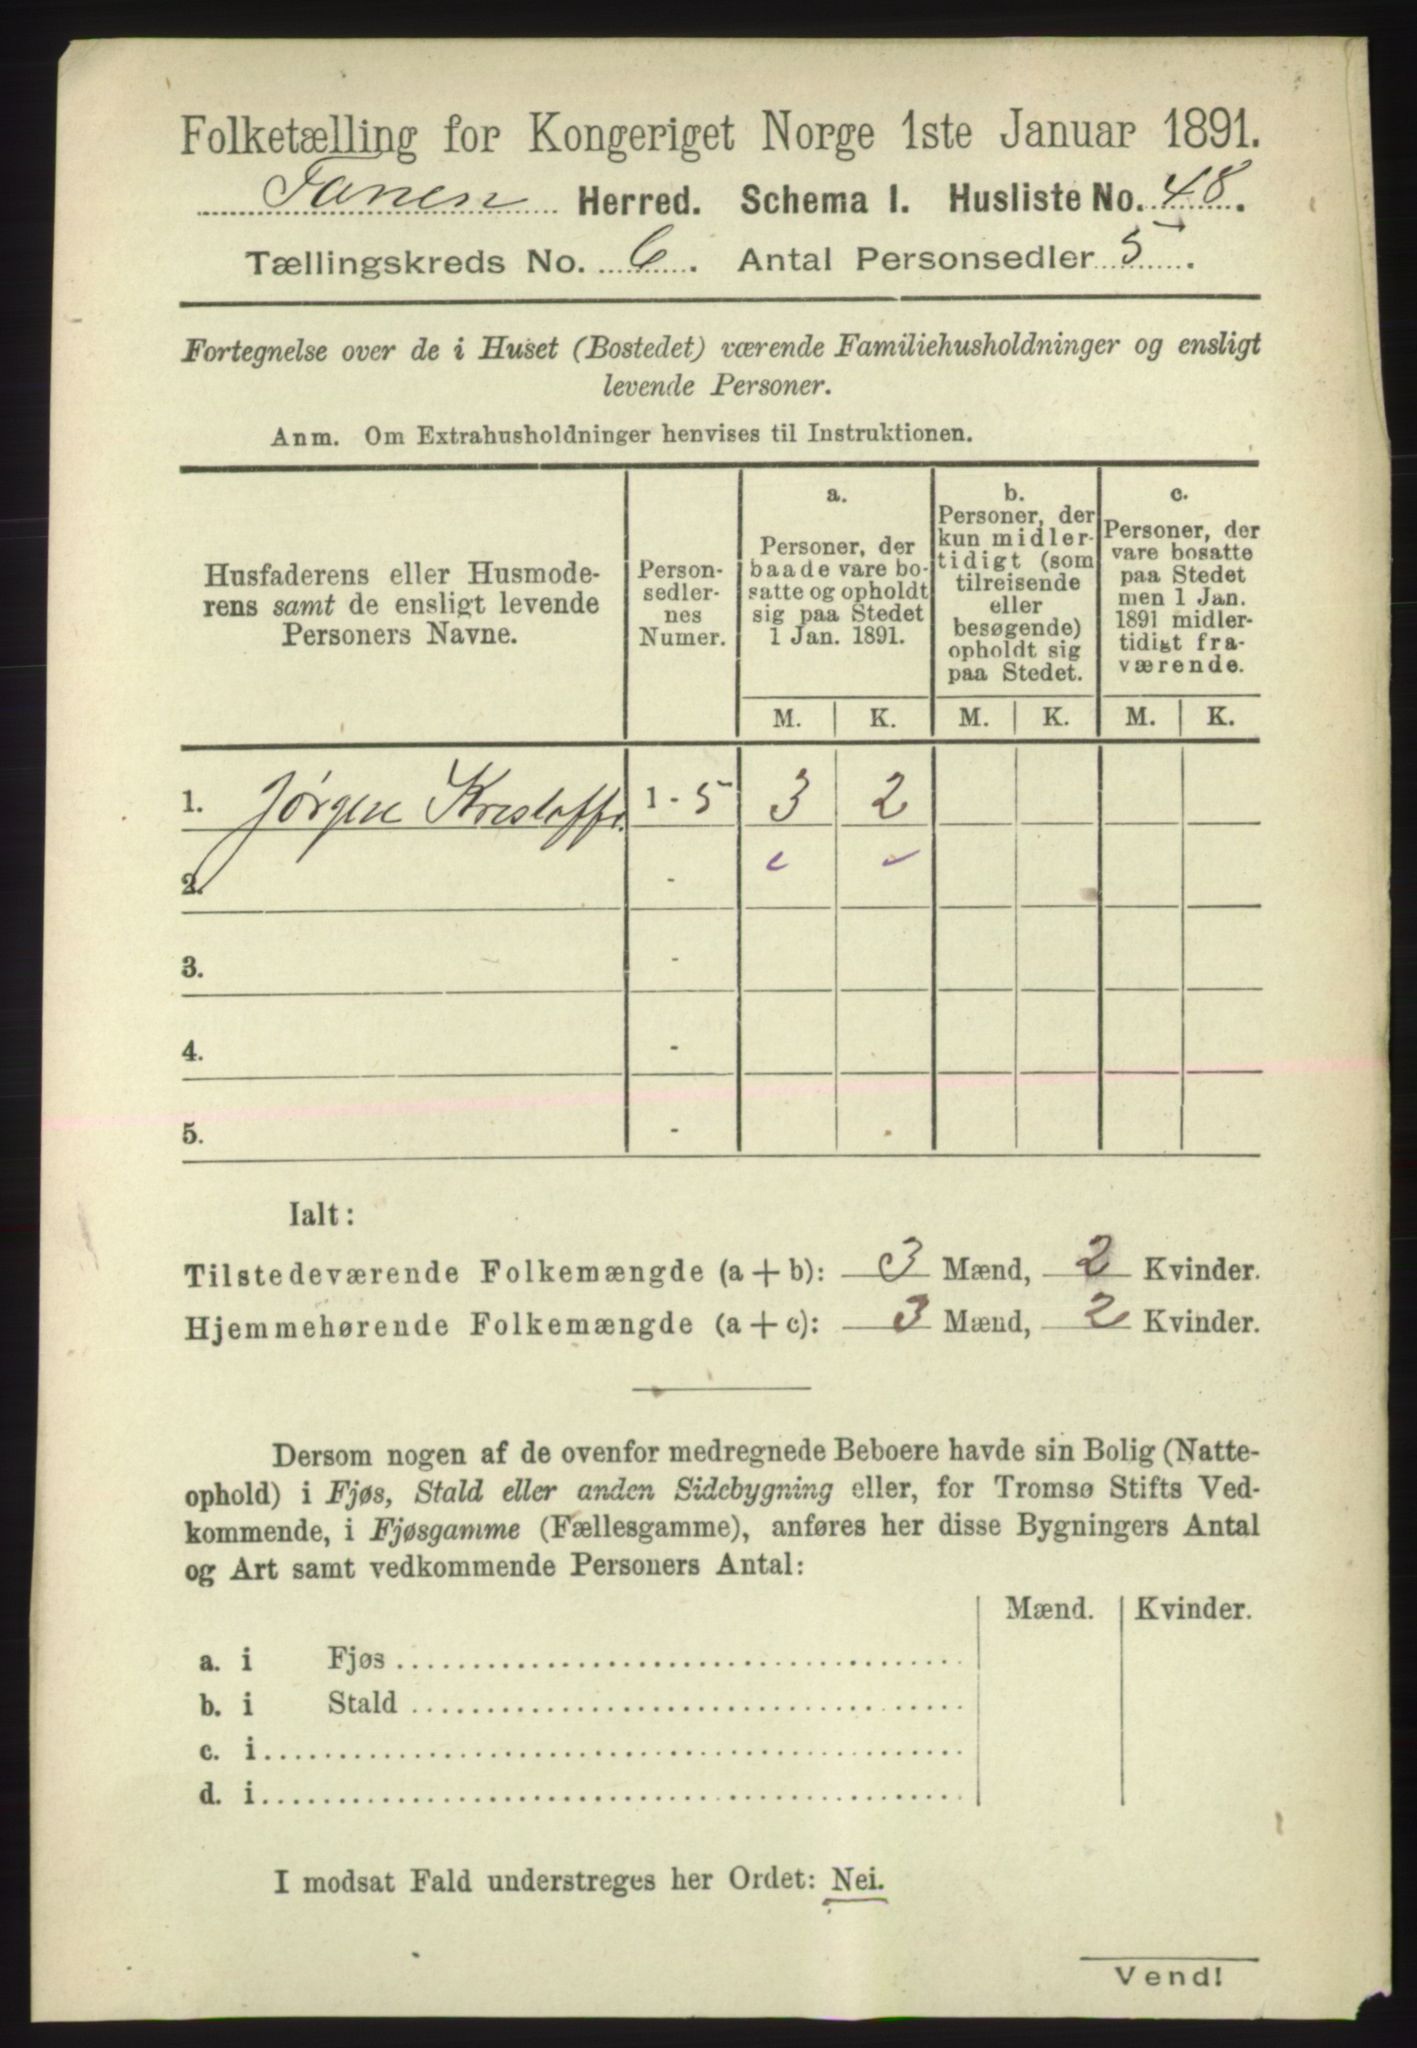 Folketælling for Kongeriget Norge 1ste Januar 1891.
Tanen Herred. Schema I. Husliste No. 48.
Tællingskreds No. 6. Antal Personsedler 5.
Fortegnelse over de i Huset (Bostedet) værende Familiehusholdninger og ensligt
levende Personer.
Anm. Om Extrahusholdninger henvises til Instruktionen.
Husfaderens eller Husmode-
rens samt de ensligt levende
Personers Navne.
Person-
sedler-
nes
Numer.
a.
Personer, der
baade vare bo-
satte og opholdt
sig paa Stedet
1 Jan. 1891.
b.
Personer, der
kun midler-
tidigt (som
tilreisende
eller
besøgende)
opholdt sig
paa Stedet.
c.
Personer, der
vare bosatte
paa Stedet
men 1 Jan.
1891 midler-
tidigt fra-
værende.
M. K. M. K. M. K.
1. Jørgen Kristoffs. 1 - 5 3 2
2. -
3. -
4. -
5. -
Ialt:
Tilstedeværende Folkemængde (a + b): 3 Mænd, 2 Kvinder.
Hjemmehørende Folkemængde (a + c): 3 Mænd, 2 Kvinder.
Dersom nogen af de ovenfor medregnede Beboere havde sin Bolig (Natte-
ophold) i Fjøs, Stald eller anden Sidebygning eller, for Tromsø Stifts Ved-
kommende, i Fjøsgamme (Fællesgamme), anføres her disse Bygningers Antal
og Art samt vedkommende Personers Antal:
Mænd. Kvinder.
a. i Fjøs
b. i Stald
c. i
d. i
I modsat Fald understreges her Ordet: Nei.
Vend!